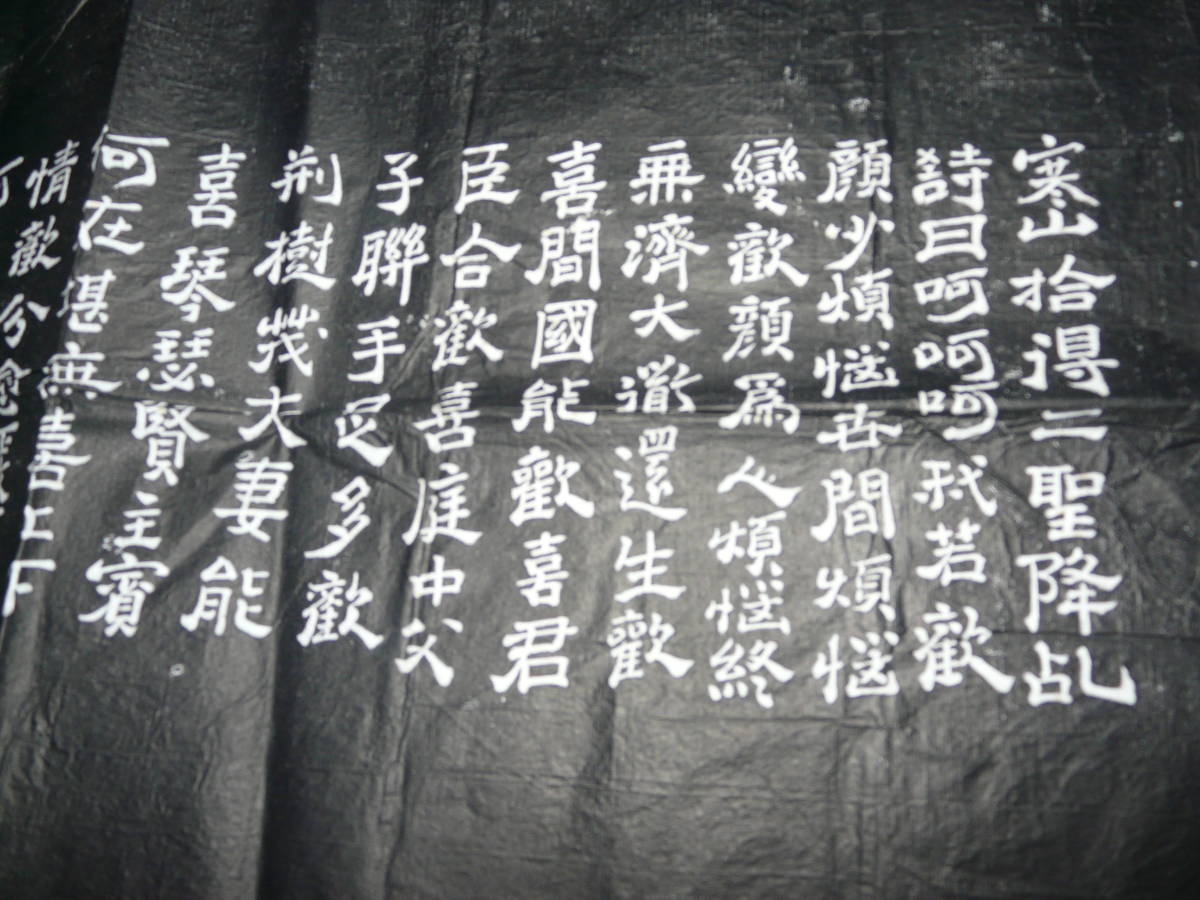 寒山拾得二聖降乩
詩曰呵呵呵我若歡
顔少煩惱世間煩惱
變歡顔爲人煩惱終
無濟大道還生歡
喜間國能歡喜君
臣合歡喜庭中父
子聯手足多歡
荆樹茂夫妻能
喜琴瑟賢主賓
何在堪無喜上下
情歡分愈